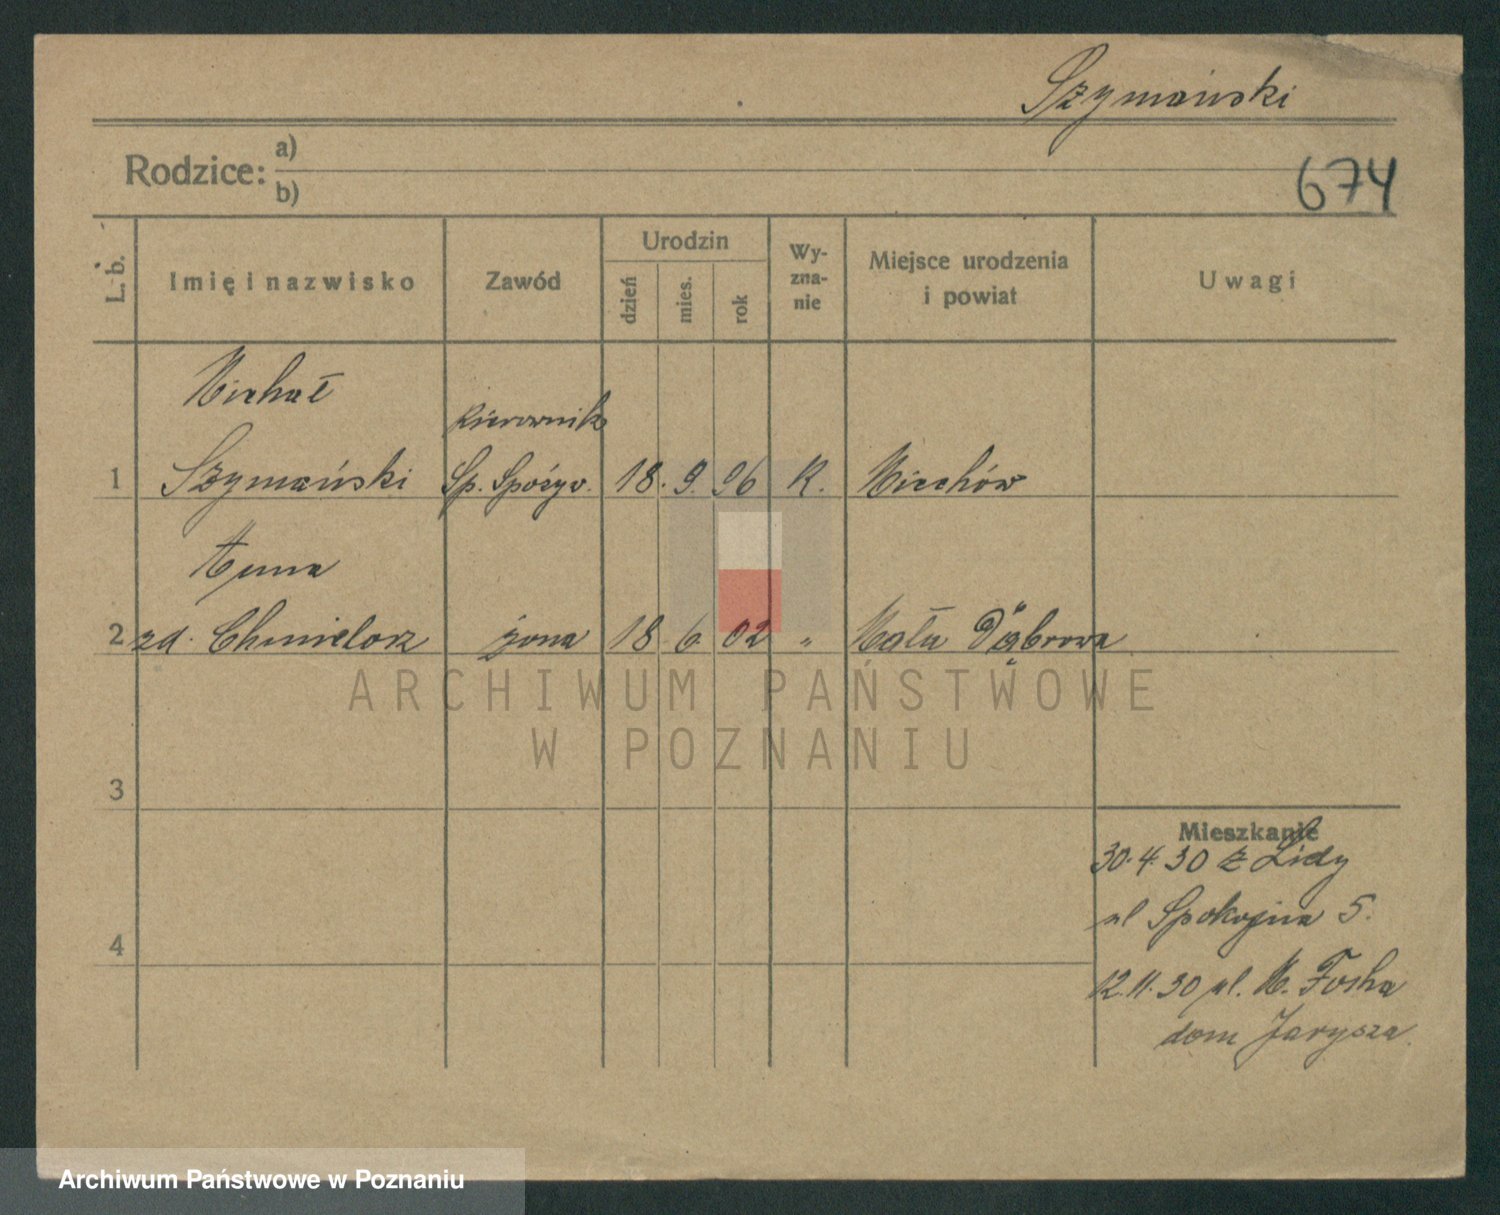 Szymański
Rodzice: a)
b)
674
L. b. Imię i nazwisko Zawód Urodzin dzień mies. rok Wy-zna-nie Miejsce urodzenia i powiat Uwagi
Michał
kierownik
1 Szymański Sp. Spożyw. 18. 9. 96 R. Miechów
Anna
2 zd. Chmielorz żona 18 6. 02 " Mała Dąbrowa
ARCHIWUM PAŃSTWOWE
W POZNANIU
3
Mieszkanie
30.4.30 z Lidy
ul Spokojna 5.
4
12.11.30 ul. M. Focha
dom Jarysza.
Archiwum Państwowe w Poznaniu